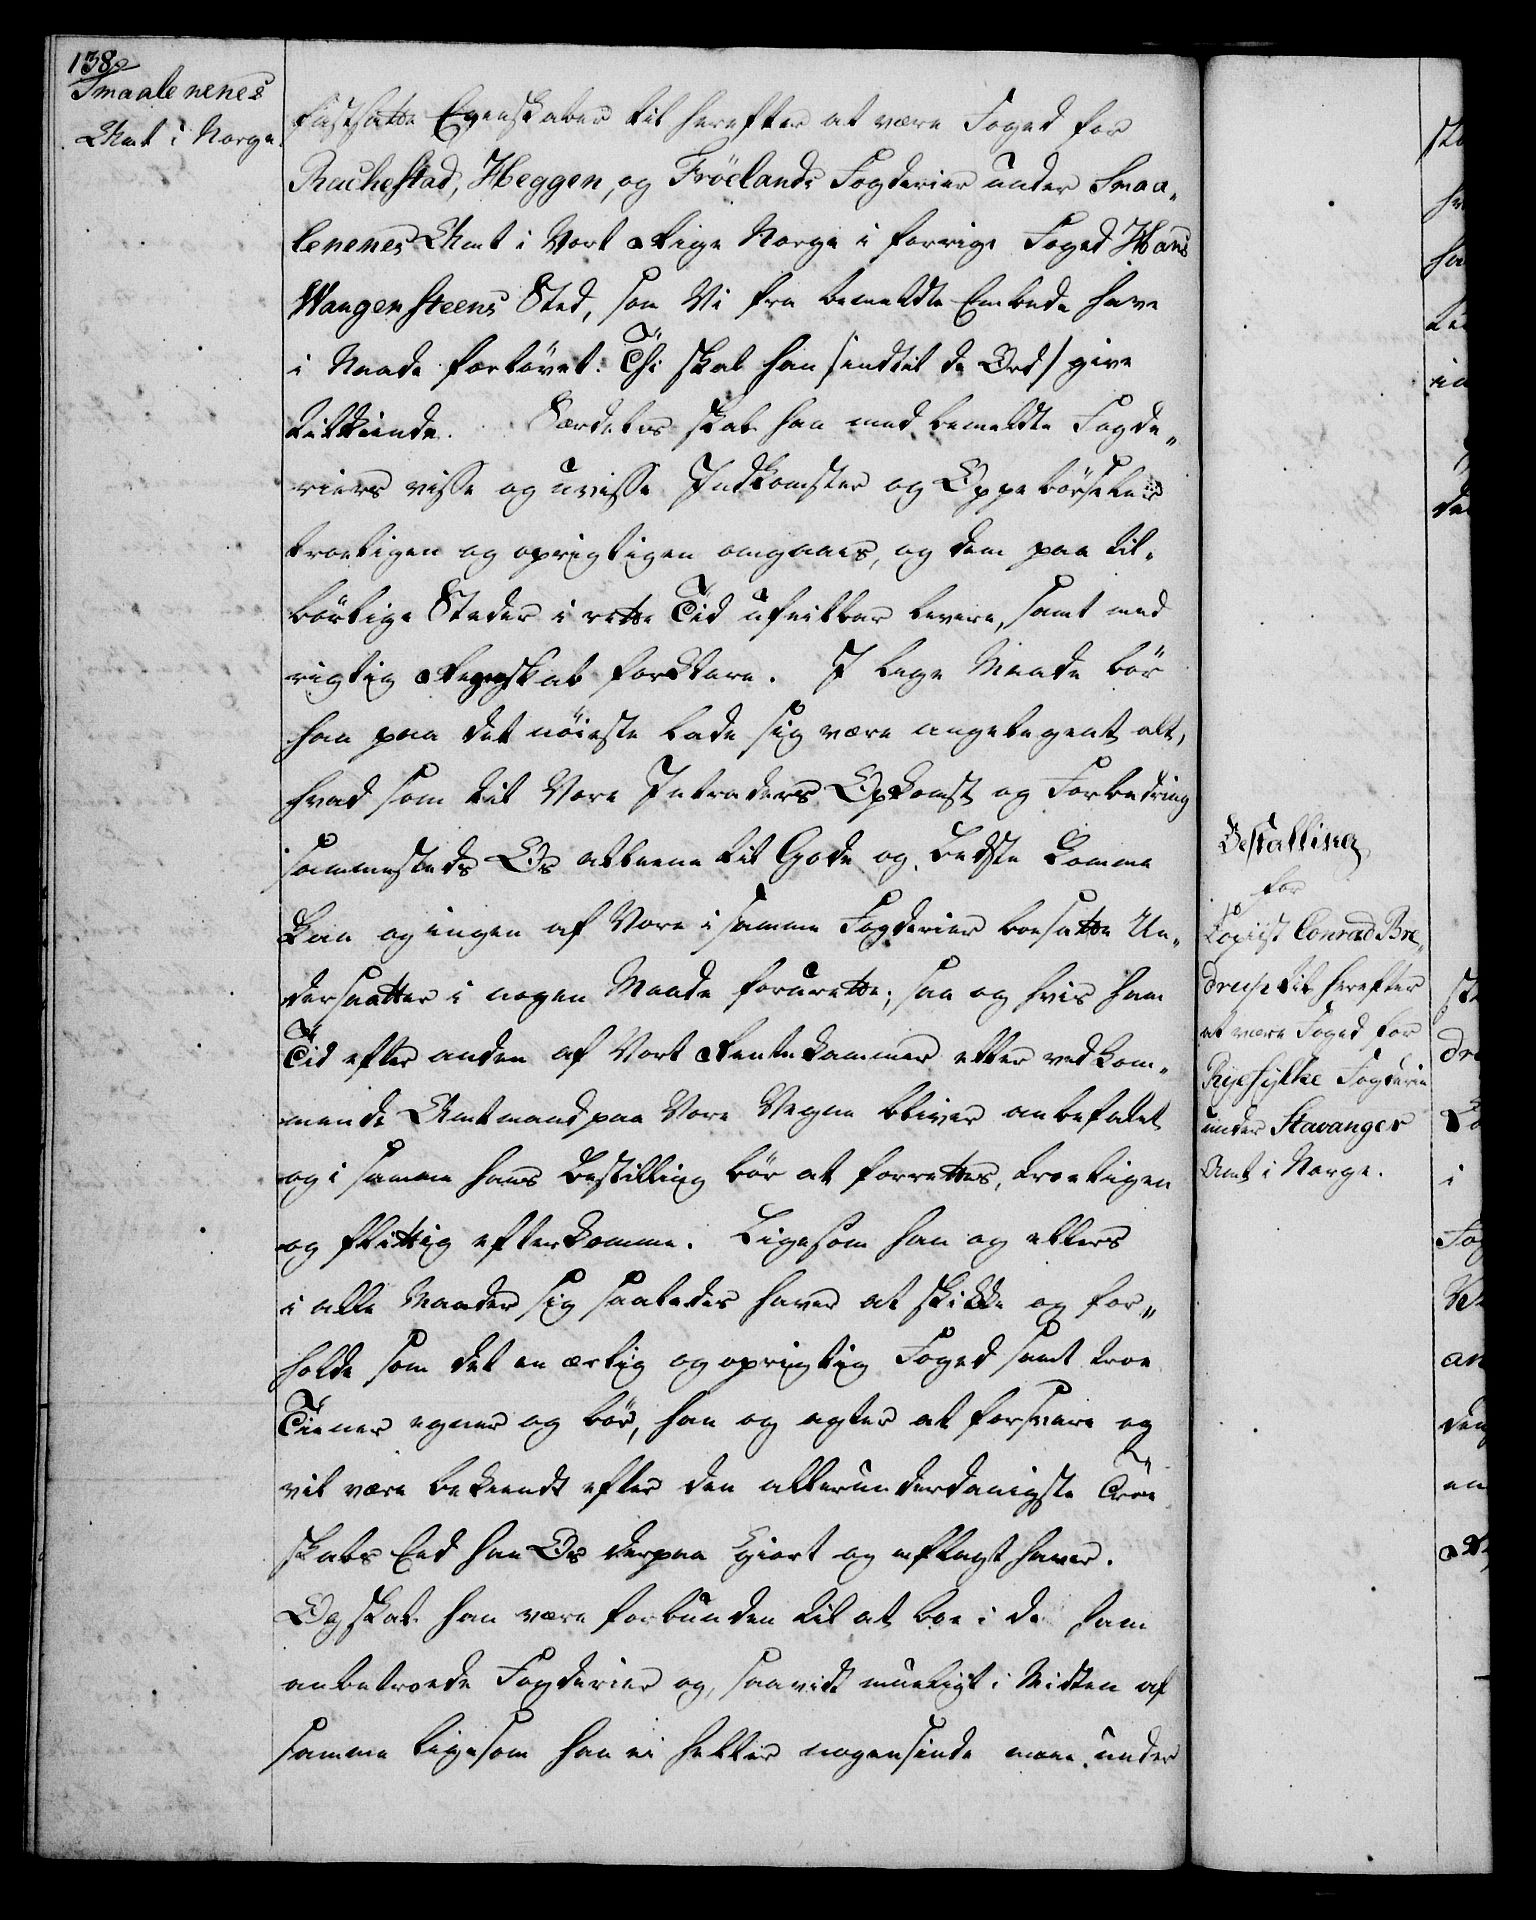 138
Smaalenenes
Amt i Norge.
fastsatte Egenskaber til herefter at være Foged for
Rachestad, Heggen, og Fröelands Fogderier under Smaa„
lenenes Amt i Vort Rige Norge i forrige Foged Hans
Wangensteens Sted, som Vi fra bemeldte Embede have
i Naade forlövet. Thi skal han /indtil de Ord/ give
tilkiende. Særdeles skal han med bemeldte Fogde„
riers visse og uvisse Indkomster og Oppebörseler
troeligen og oprigtigen omgaaes, og dem paa til„
börlige Steder i rette Tid ufeilbar levere, samt med
rigtig Regnskab forklare. I lige Maade bör
han paa det nöieste lade sig være angelegent alt,
hvad som til Vore Intraders Opkomst og Forbedring
sammesteds Os alleene til Gode og Bedste komme
kan og ingen af Vore i samme Fogderier boesatte Un„
dersaatter i nogen Maade forurette; saa og hvis ham
Tid efter anden af Vort Rentekammer eller vedkom„
mende Amtmand paa Vore Vegne bliver anbefalet
og i samme hans Bestilling bör at forrettes, troeligen
og flittig efterkomme. Ligesom han og ellers
i alle Maader sig saaledes haver at skikke og for„
holde som det en ærlig og oprigtig Foged samt troe
Tiener egner og bör, han og agter at forsvare og
vil være bekiendt efter den allerunderdanigste Troe
skabs Eed han Os derpaa giort og aflagt haver.
Og skal han være forbunden til at boe i de ham
anbetroede Fogderier og, saavidt mueligt i Midten af
samme ligesom han ei heller nogensinde maae under
Bestalling
for
Copiist Conrad Bre„
drup til herefter
at være Foged for
Ryefylke Fogderie
under Stavanger
Amt i Norge.